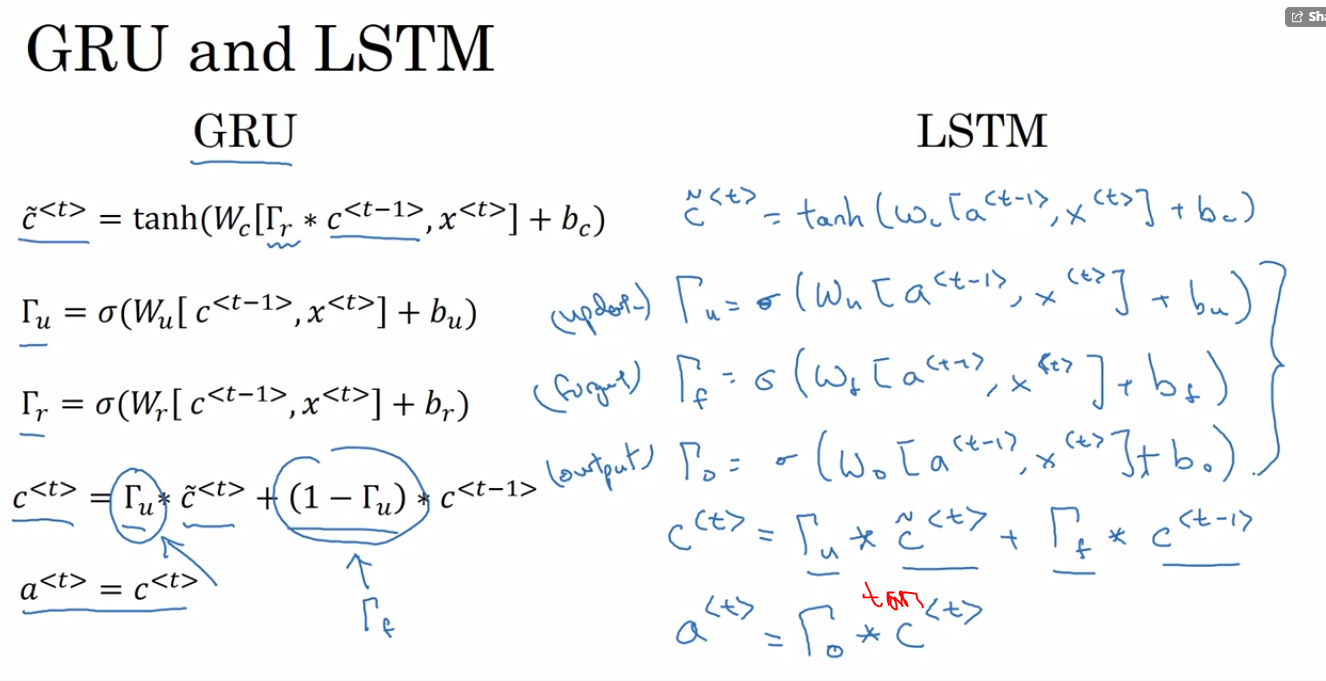 Sha
GRU and LSTM
GRU
c̃<t> = tanh(Wc[Γr * c<t−1>, x<t>] + bc)
Γu = σ(Wu[ c<t−1>, x<t>] + bu)
Γr = σ(Wr[ c<t−1>, x<t>] + br)
c<t> = Γu * c̃<t> + (1 − Γu) * c<t−1>
a<t> = c<t>
Γf
LSTM
c̃<t> = tanh(Wc[a<t-1>, x<t>] + bc)
(update) Γu = σ(Wu[a<t-1>, x<t>] + bu)
(forget) Γf = σ(Wf[a<t-1>, x<t>] + bf)
(output) Γo = σ(Wo[a<t-1>, x<t>] + bo)
c<t> = Γu * c̃<t> + Γf * c<t-1>
tan
a<t> = Γo * c<t>